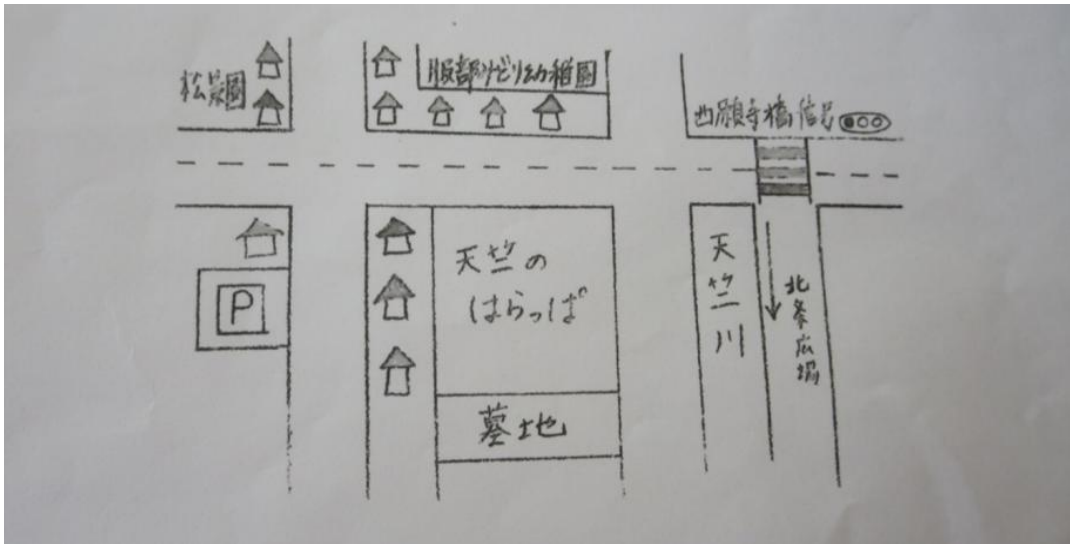 松景園
服部みどり幼稚園
西願寺橋信号
天竺の
はらっぱ
天竺川
北条広場
P
墓地